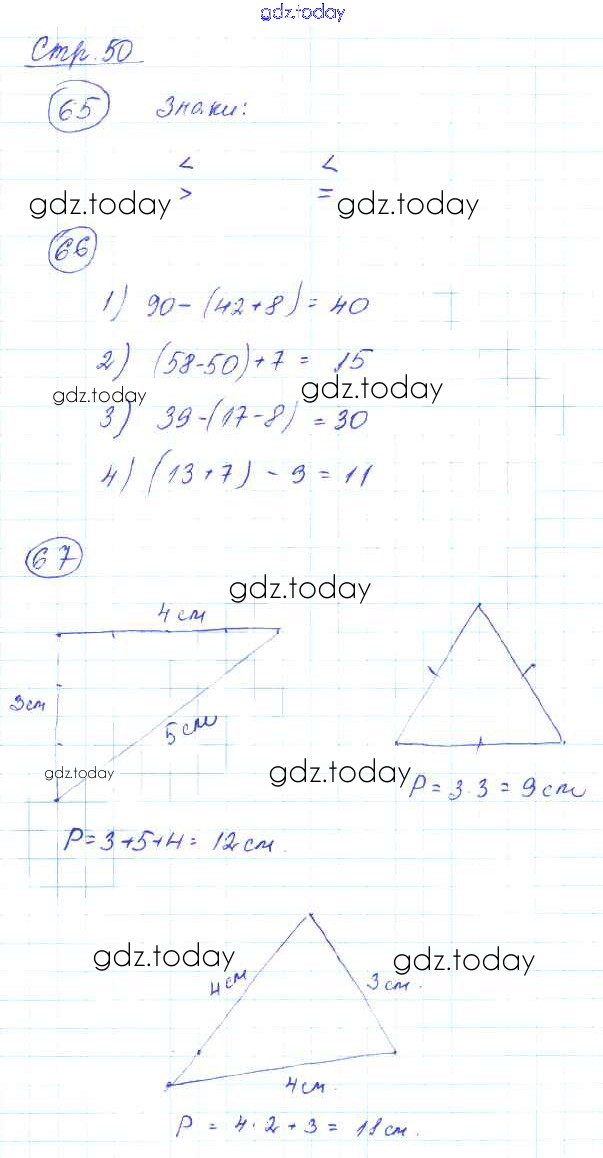 gdz.today
Стр. 50
65 Знаки:
< <
gdz.today > = gdz.today
66
1) 90-(42+8)=40
2) (58-50)+7=15
gdz.today gdz.today
3) 39-(17-8)=30
4) (13+7)-9=11
67
gdz.today
4см
3см
5см
gdz.today gdz.today
P=3·3=9см
P=3+5+4=12см.
gdz.today gdz.today
4см 3см.
4см.
P=4·2+3=11см.